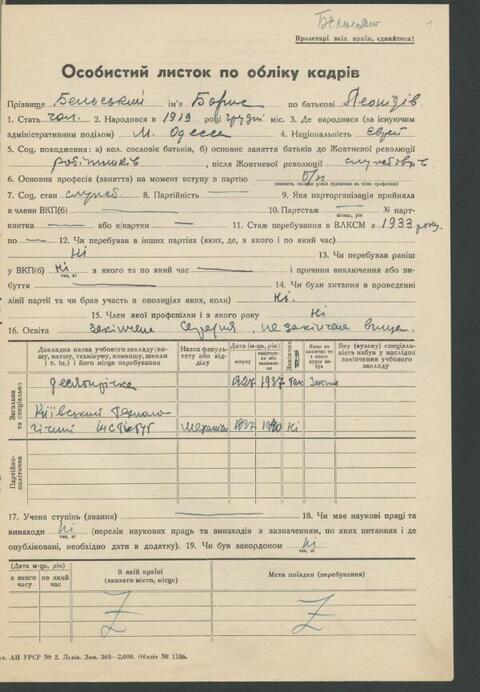 1
Пролетарі всіх країн, єднайтеся!
Особистий листок по обліку кадрів
Прізвище Бельський ім'я Борис по батькові Леонідів.
1. Стать чол. 2. Народився в 1919 році грудні міс. 3. Де народився (за існуючим
адміністративним поділом) м. Одеса 4. Національність Єврей
5. Соц. походження: а) кол. сословіє батьків, б) основне заняття батьків до Жовтневої революції
робітників, після Жовтневої революції службовців
6. Основна професія (заняття) на момент вступу в партію б/п
7. Соц. стан службов 8. Партійність — 9. Яка парторганізація прийняла
в члени ВКП(б) — 10. Партстаж — № парт-
місяць, рік
квитка — або к/картки — 11. Стаж перебування в ВЛКСМ з 1933 року.
по — 12. Чи перебував в інших партіях (яких, де, з якого і по який час)
Ні 13. Чи перебував раніш
у ВКП(б) Ні з якого та по який час — і причини виключення або ви-
так, ні
буття — 14. Чи були хитання в проведенні
лінії партії та чи брав участь в опозиціях яких, коли) Ні.
15. Член якої профспілки і з якого року Ні
16. Освіта закінчена середня, незакінчена вища.
Докладна назва учбового закладу (вищ, втишу, технікуму, комвишу, школи і т. ін.) і його місце перебування
Назва факультету або відділу
Дата (м-ць, рік)
вступу
Закінчив
Яку (вузьку) спеціальність набув у наслідок закінчення учбового закладу
Загальна та спеціальна
десятирічка 1927 1937 Так
Київський техноло
гічний інститут Механічн 1937 1940 Ні
Партійно-політична
17. Учена ступінь (звання) — 18. Чи має наукові праці та
винаходи Ні (перелік наукових праць та винаходів з зазначенням, по яких питаннях і де
так, ні
опубліковані, необхідно дати в додатку). 19. Чи був закордоном Ні
так, ні
(Дата м-ць, рік)
з якого часу
по який час
В якій країні
(вказати місто, місце)
Мета поїздки (перебування)
Z Z
АН УРСР № 2. Львів. Зам. 368—2.000. Обліліт № 1186.